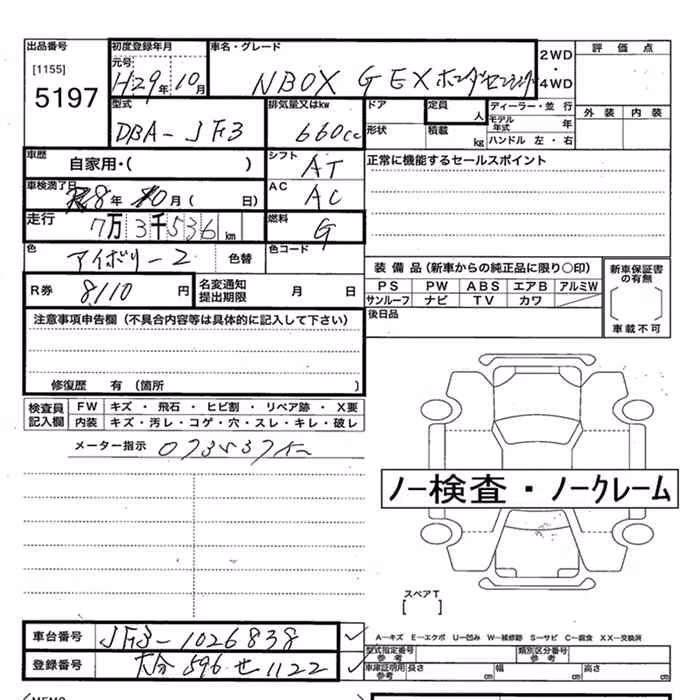 出品番号
[1155]
5197
初度登録年月
元号
H29年10月
車名・グレード
NBOX G EX ホンダセンシング
2WD
4WD
評価点
外装 内装
型式
DBA-JF3
排気量又はkw
660cc
ドア
形状
定員
人
積載
kg
ディーラー・並行
モデル年式 年
ハンドル 左・右
車歴
自家用・( )
シフト
AT
正常に機能するセールスポイント
車検満了日
R8年10月( 日)
AC
AC
走行
7万3千536km
燃料
G
色
アイボリー2
色替
色コード
R券
8,110円
名変通知
提出期限
月 日
装備品(新車からの純正品に限り○印)
PS PW ABS エアB アルミW
サンルーフ ナビ TV カワ
後日品
新車保証書
の有無
車載不可
注意事項申告欄(不具合内容等は具体的に記入して下さい)
修復歴 有 (箇所 )
検査員
記入欄
FW キズ・飛石・ヒビ割・リペア跡・X要
内装 キズ・汚レ・コゲ・穴・スレ・キレ・破レ
メーター指示
073537K
ノー検査・ノークレーム
スペアT
[ ]
車台番号
JF3-1026838
登録番号
大分 596 せ 1122
A-キズ E-エクボ U-凹み W-補修跡 S-サビ C-腐食 XX-交換済
型式指定番号
参考
類別区分番号
参考
車検証明記
参考
長さ cm 幅 cm 高さ cm
MEMO